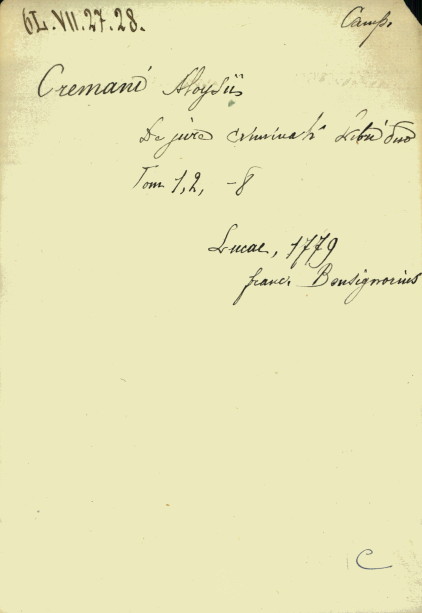 6L.VII.27.28. Camp.
Cremani Aloysii
De jure criminali Libri duo
Tom 1, 2, -8
Lucae, 1779
franc. Bonsignorius
C